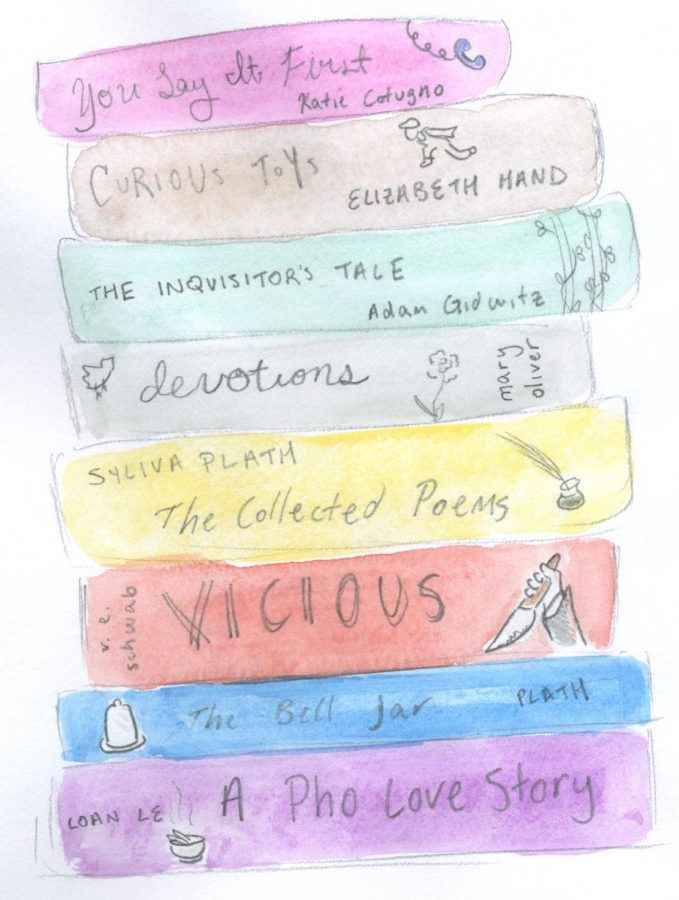 You Say It First
Katie Cotugno
CURIOUS TOYS
ELIZABETH HAND
THE INQUISITOR'S TALE
Adam Gidwitz
devotions
mary
oliver
SYLIVA PLATH
The Collected Poems
v. e.
schwab
VICIOUS
The Bell Jar
PLATH
LOAN LE
A Pho Love Story